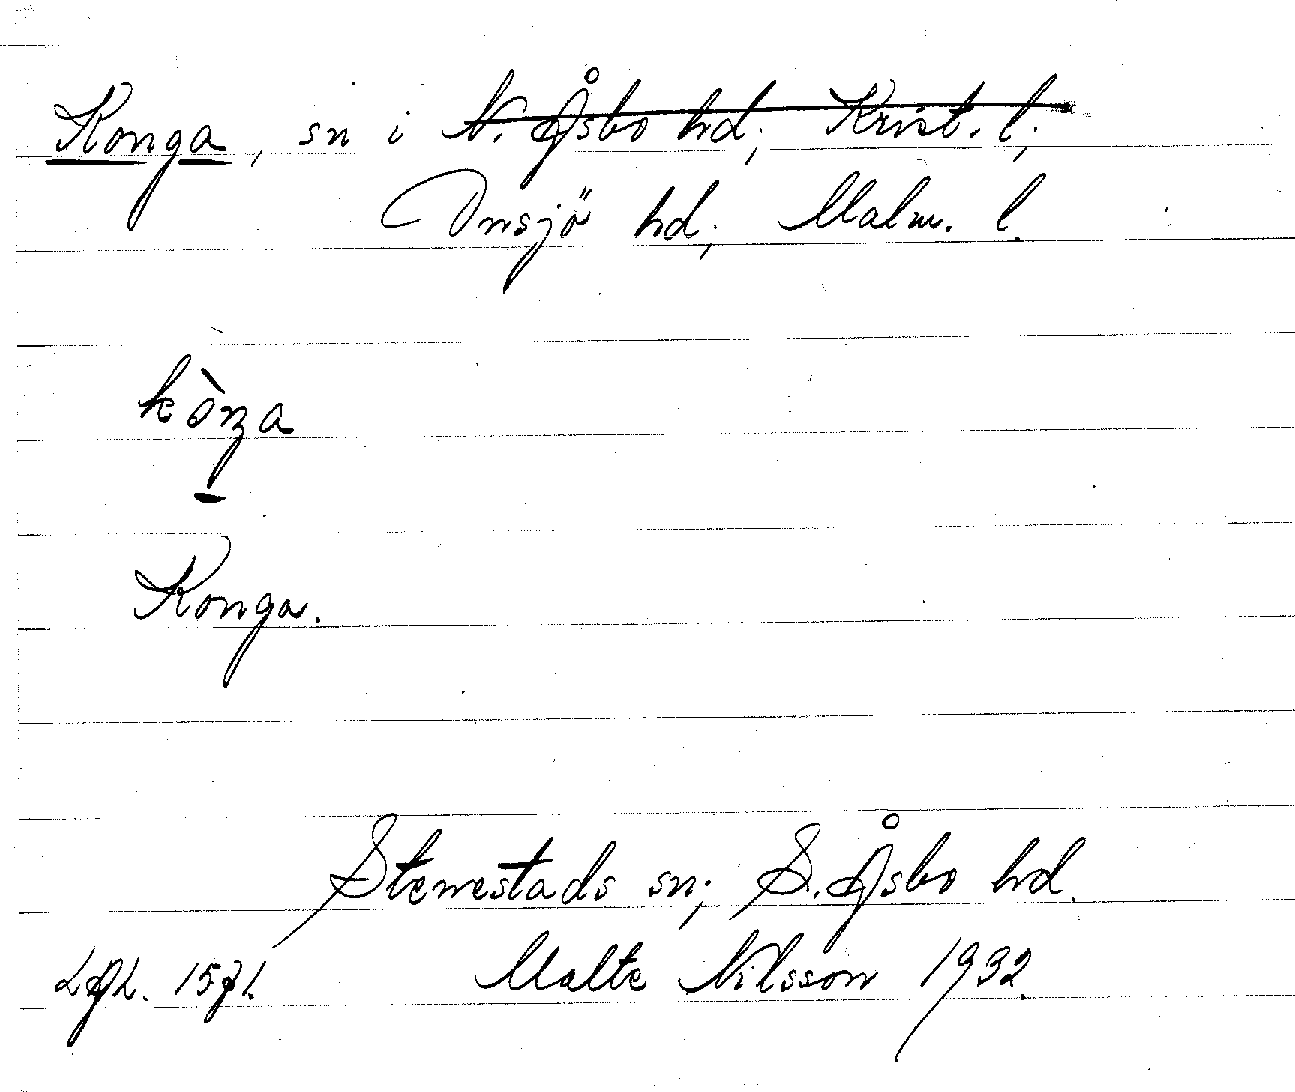 Konga, sn i N. Åsbo hd; Krist. l;
Onsjö hd; Malm. l.
kòŋa
Konga.
Stenestads sn; S. Åsbo hd.
Malte Nilsson 1932.